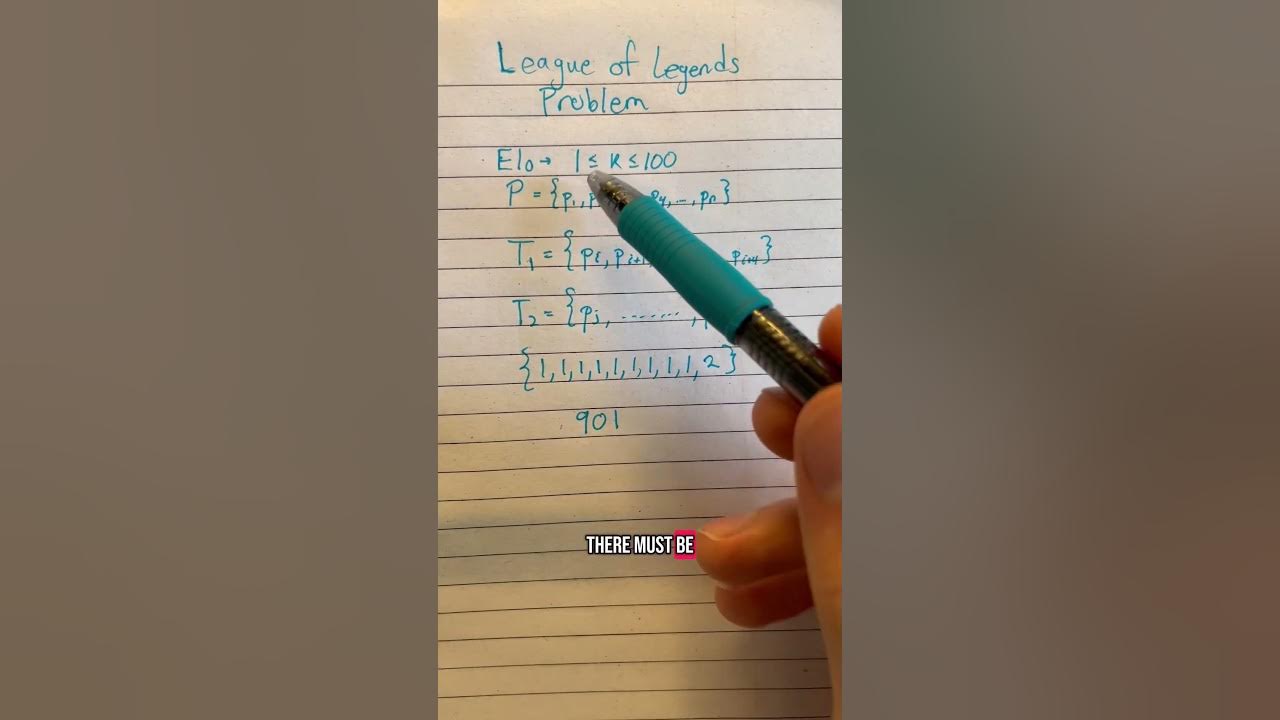 League of Legends
Problem
Elo → 1 ≤ k ≤ 100
P = {p₁, p p₄, ..., pₙ}
T₁ = {pᵢ, pᵢ₊₁ pᵢ₊₄}
T₂ = {pⱼ, ........,
{1,1,1,1,1,1,1,1,1,2}
901
THERE MUST BE